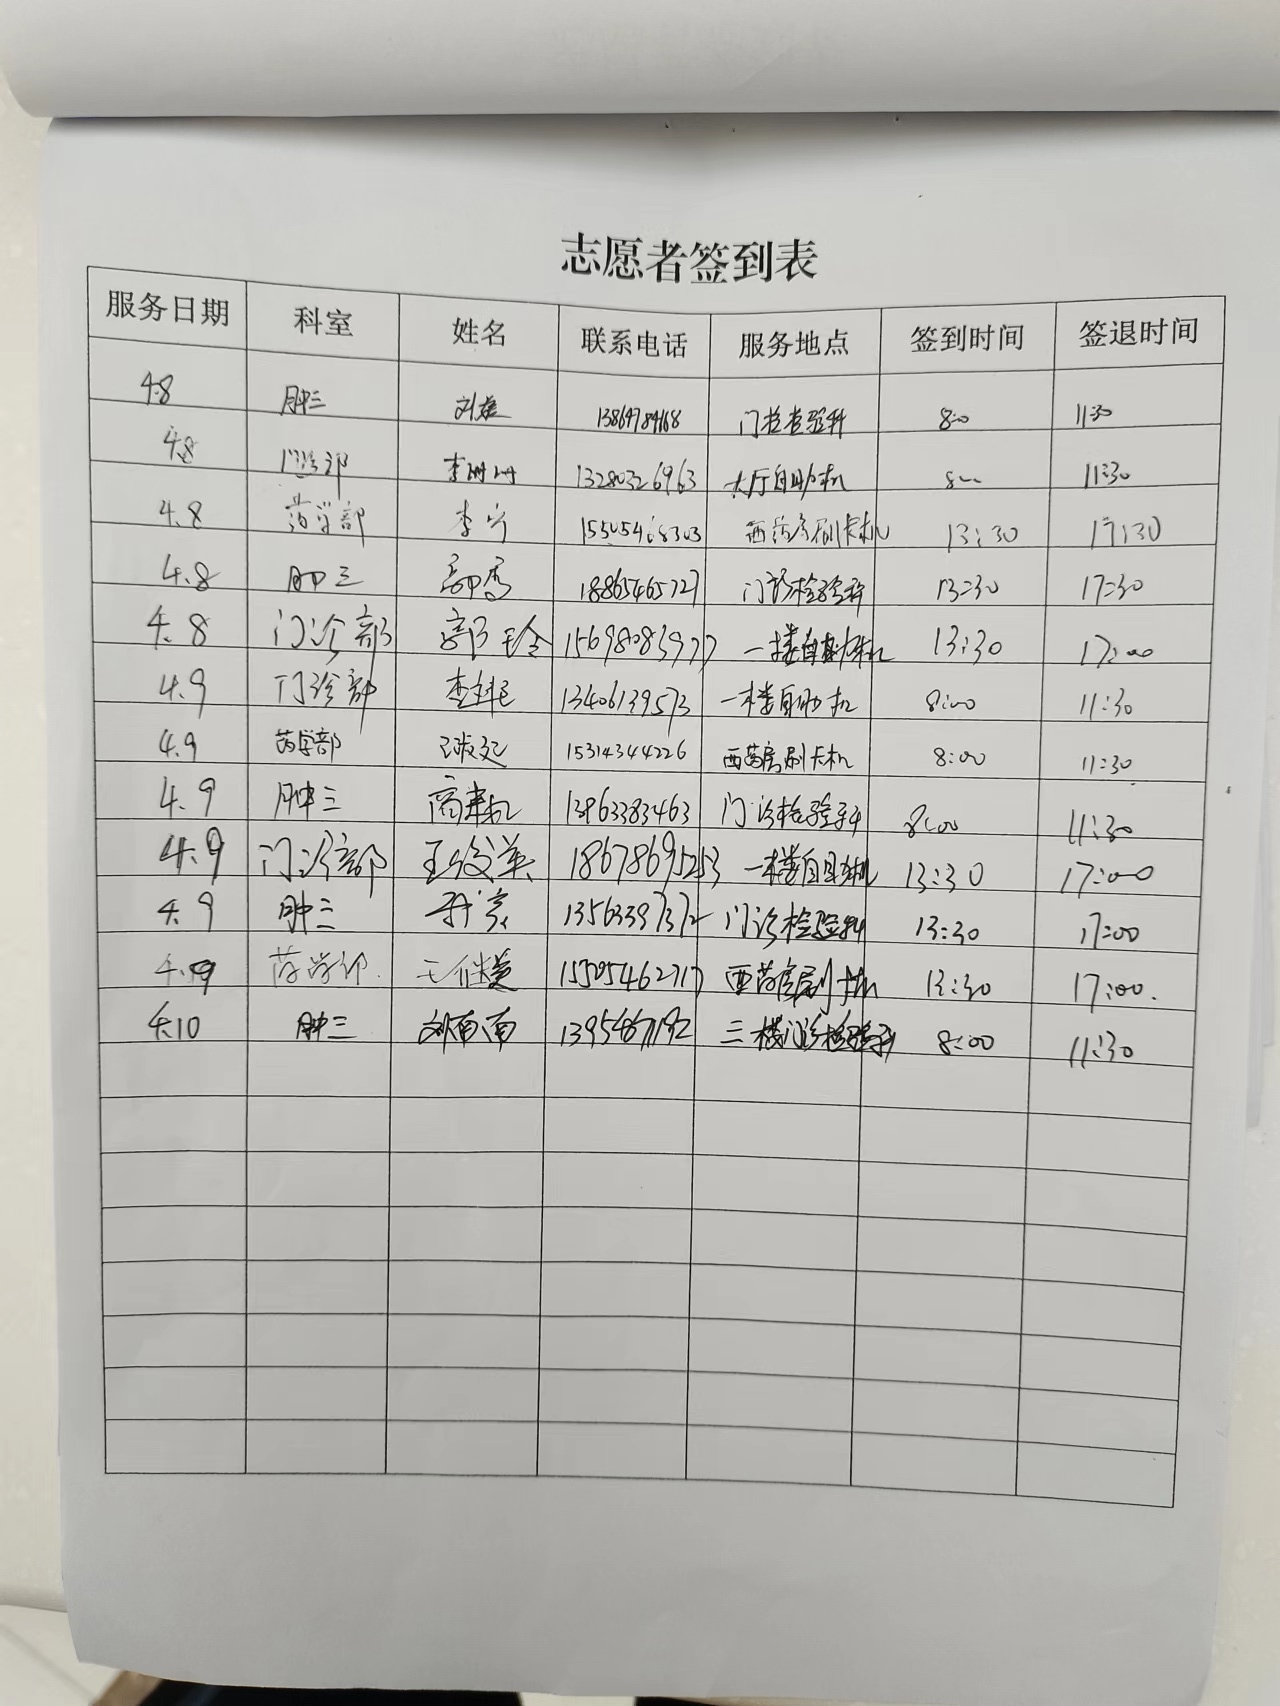 志愿者签到表
服务日期 科室 姓名 联系电话 服务地点 签到时间 签退时间
4.8 肿三 刘 门检验科 8:00 11:30
4.8 门诊部 李珊珊 13280326963 大厅自助机 8:00 11:30
4.8 药学部 李宁 15505468303 西药房刷卡机 13:30 17:30
4.8 肿三 18865465727 门诊检验科 13:30 17:30
4.8 门诊部 一楼自助机 13:30 17:00
4.9 门诊部 13406139573 一楼自助机 8:00 11:30
4.9 药学部 15314344226 西药房刷卡机 8:00 11:30
4.9 肿三 13963383463 门诊检验科 8:00 11:30
4.9 门诊部 王俊英 一楼自助机 13:30 17:00
4.9 肿三 13563397372 门诊检验科 13:30 17:00
4.9 药学部 王继美 15705462717 西药房刷卡机 13:30 17:00.
4.10 肿三 刘南南 13954671192 三楼门诊检验科 8:00 11:30